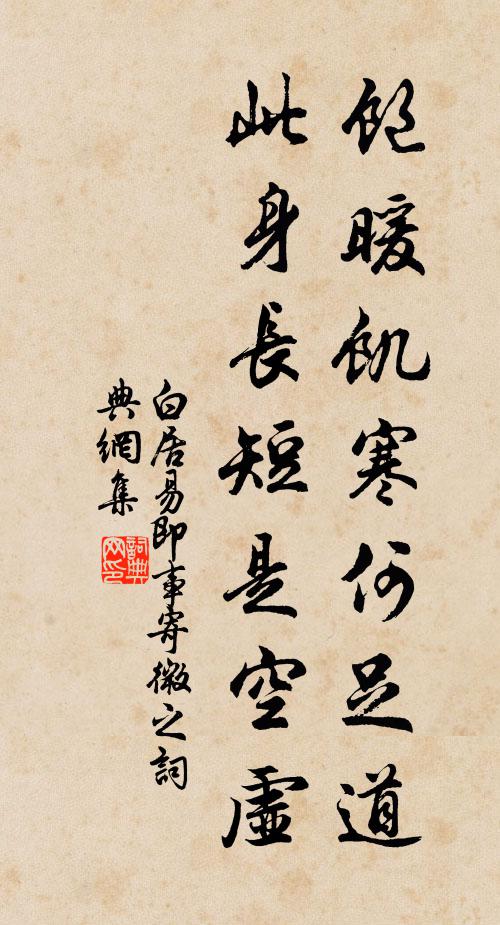 飽暖飢寒何足道
此身長短是空虛
白居易即事寄微之詞
典網集
詞典
网印